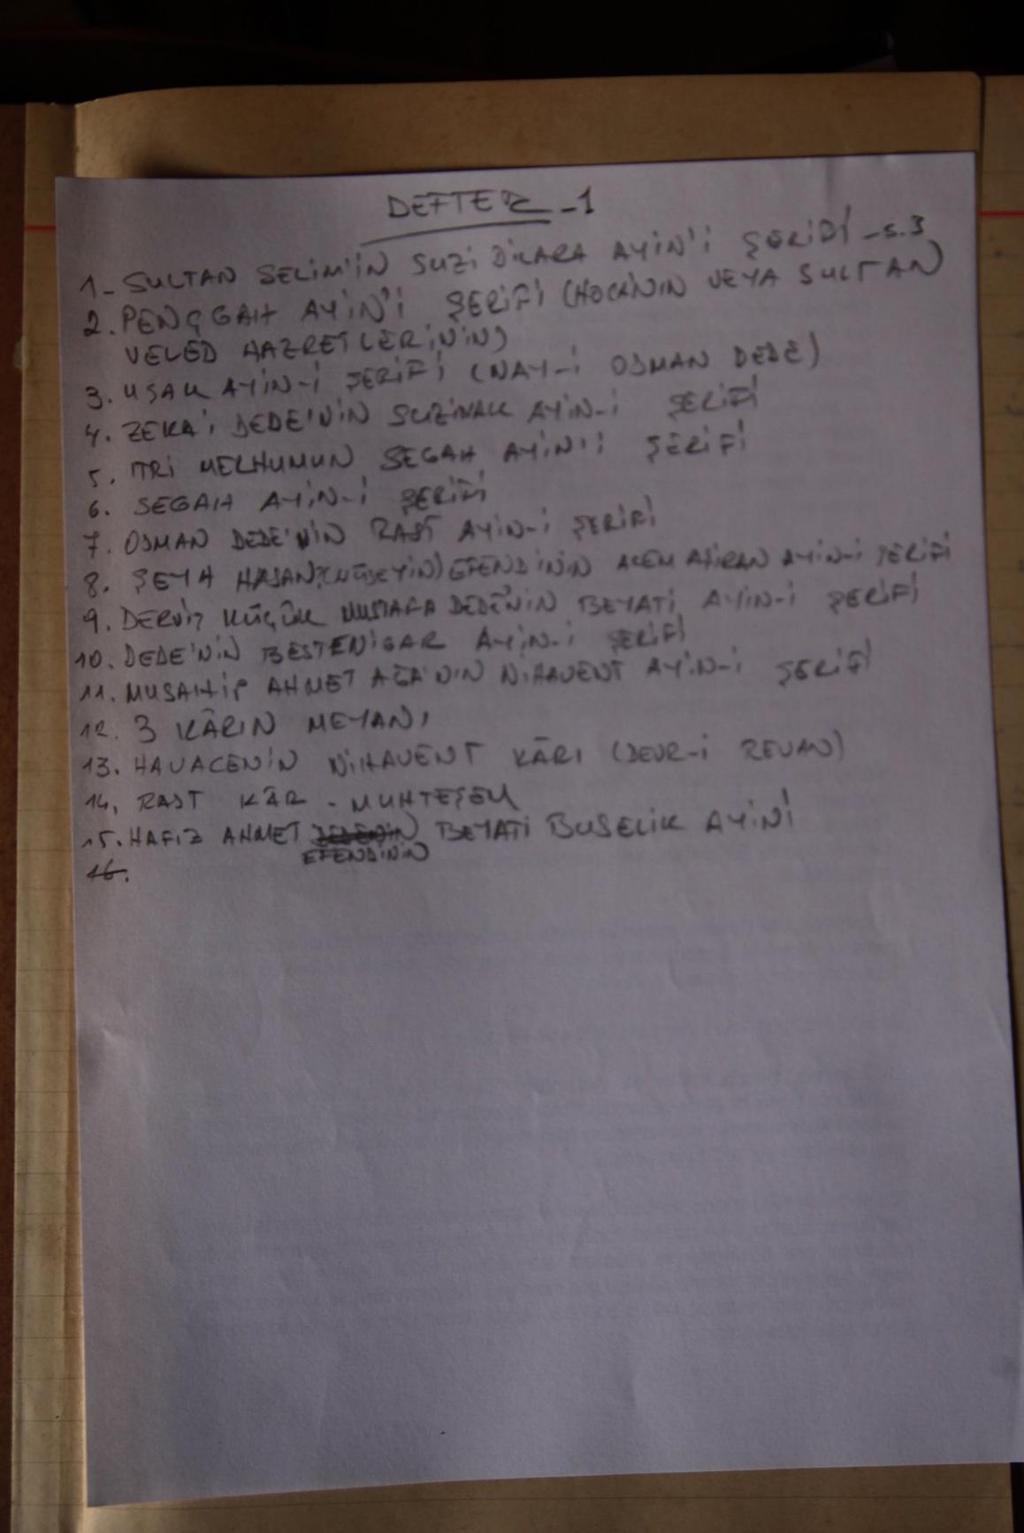 DEFTER-1
1- SULTAN SELİM'İN SUZİ DİLARA AYİN'İ ŞERİFİ - s.3
2. PENÇGAH AYİN'İ ŞERİFİ (HOCA'NIN VEYA SULTAN
VELED HAZRETLERİNİN)
3. UŞAK AYİN-İ ŞERİFİ (NAY-İ OSMAN DEDE)
4. ZEKA'İ DEDE'NİN SUZİNAK AYİN-İ ŞERİFİ
5. ITRİ MERHUMUN SEGAH AYİN'İ ŞERİFİ
6. SEGAH AYİN-İ ŞERİFİ
7. OSMAN DEDE'NİN RAST AYİN-İ ŞERİFİ
8. ŞEYH HASAN (HÜSEYİN) EFENDİNİN ACEM AŞİRAN AYİN-İ ŞERİFİ
9. DERVİŞ KÜÇÜK MUSTAFA DEDE'NİN BEYATİ AYİN-İ ŞERİFİ
10. DEDE'NİN BESTENİGAR AYİN-İ ŞERİFİ
11. MUSAHİP AHMET AĞA'NIN NİHAVENT AYİN-İ ŞERİFİ
12. 3 KÂRIN MEYANI
13. HAVACENİN NİHAVENT KÂRI (DEVR-İ REVAN)
14. RAST KÂR - MUHTEŞEM
15. HAFIZ AHMET DEDENİN BEYATİ BUSELİK AYİNİ
EFENDİNİN
16.